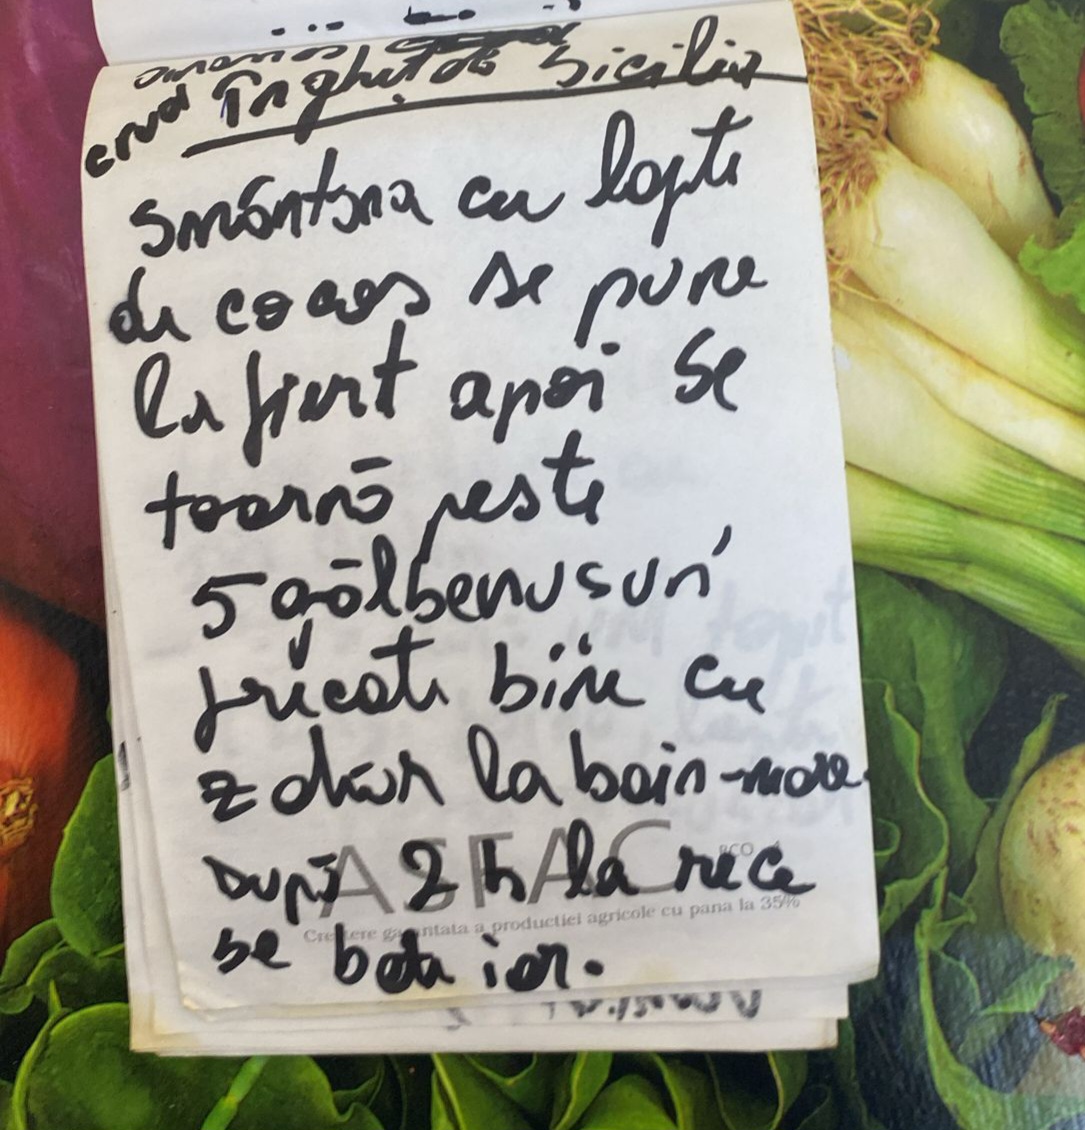 ananas
crud Înghețată Sicilia
Smântână cu lapte
de cocos se pune
la fiert apoi se
toarnă peste
5 gălbenușuri
frecate bine cu
zahăr la bain-mare.
După 2 h la rece
se bate iar.
ASFAC
Crestere garantata a productiei agricole cu pana la 35%